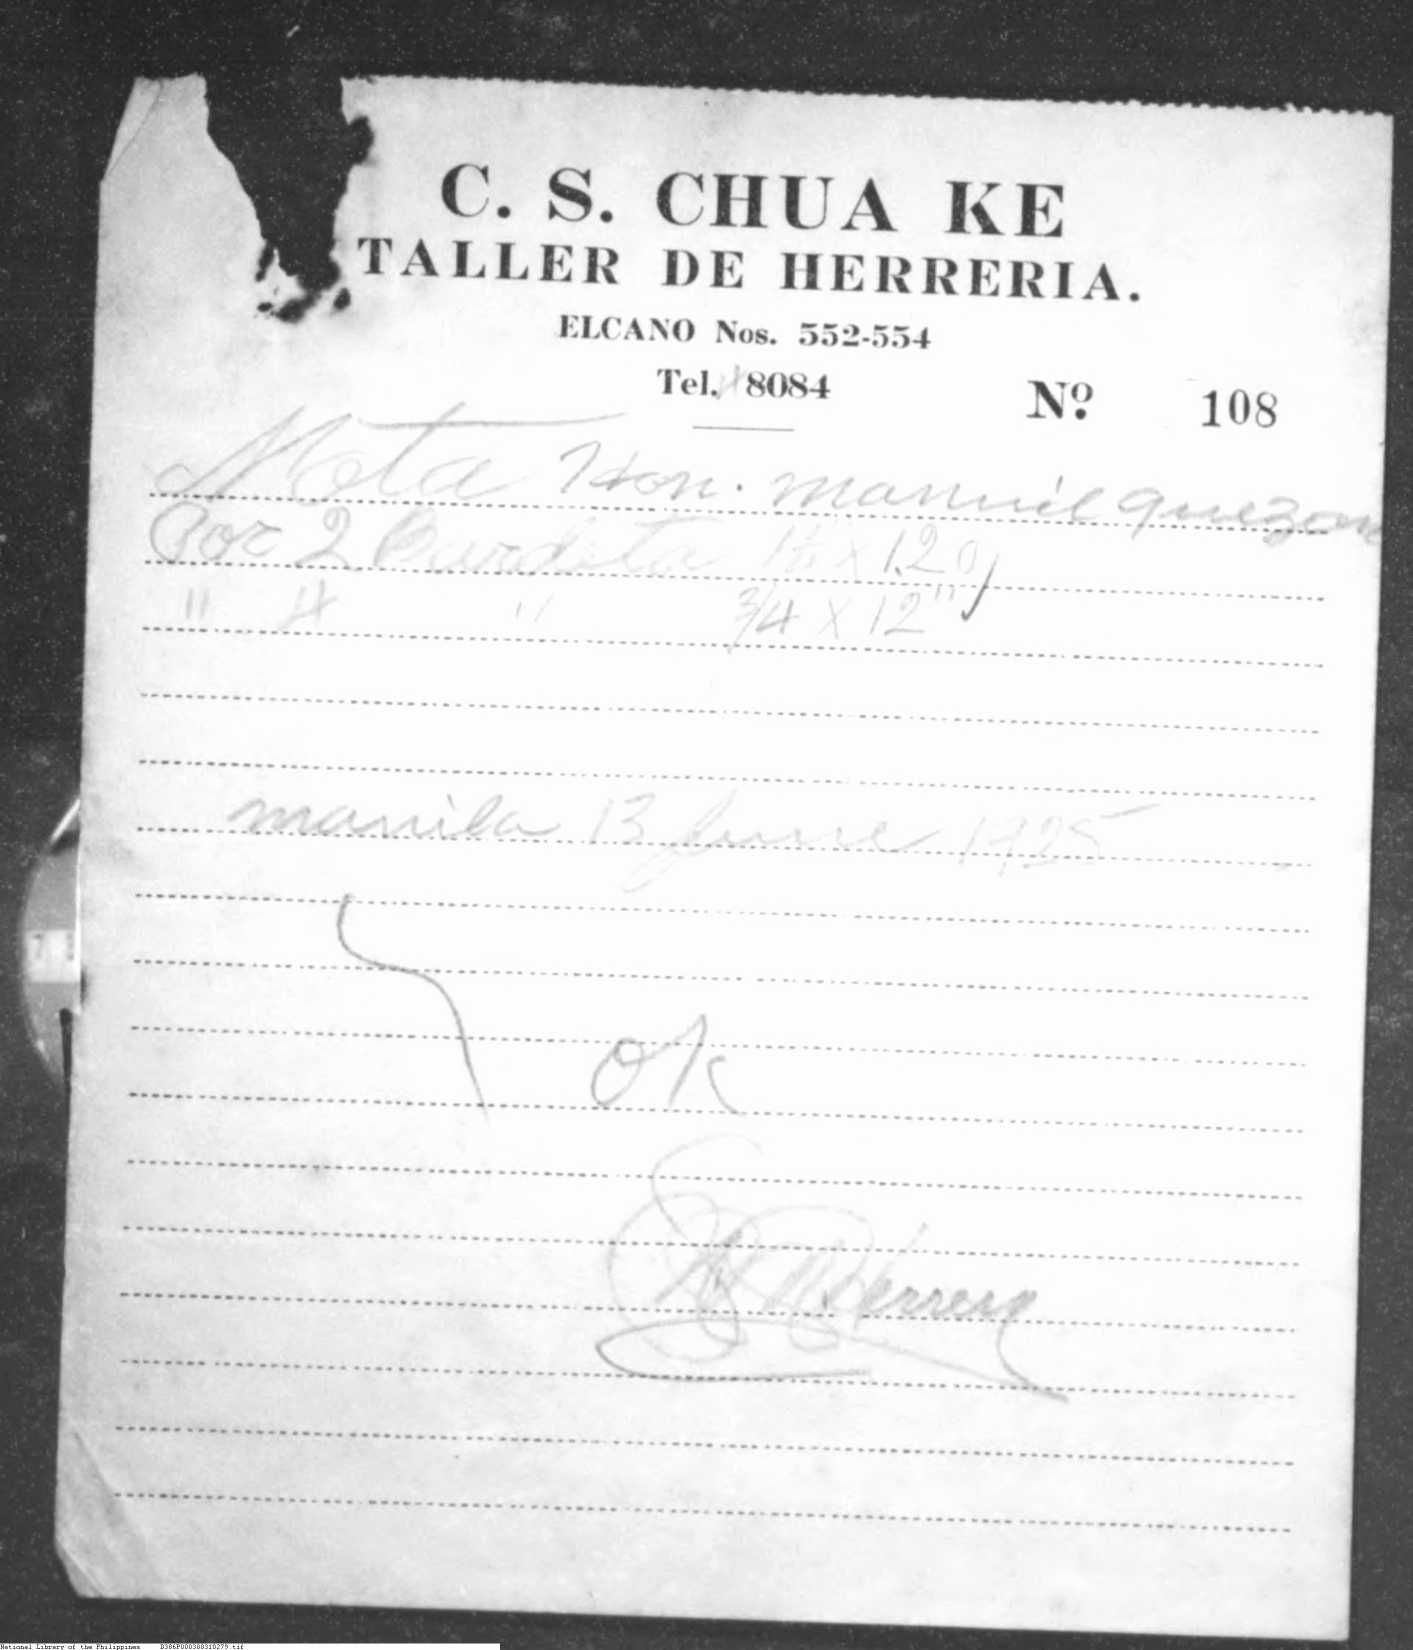 C. S. CHUA KE
TALLER DE HERRERIA.
ELCANO Nos. 552-554
Tel. 8084
Nº. 108
Nota Hon. Manuil Quezon
Por 2 1½ x 1.20
" 4 " ¾ x 12"
Manila 13 June 1925
OK
Herrera
National Library of the Philippines D386P000300310279.tif